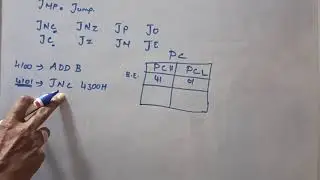 JMP. Jump.
JNC JNZ JP JO
JC. JZ JM JE
PC
4100 → ADD B B.E. PCH PCL
4101 → JNC 4300H 41 01